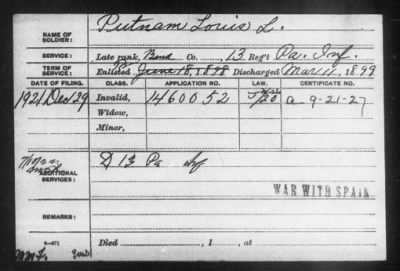 NAME OF SOLDIER: Putnam Louis L.
SERVICE: Late rank, Band Co. , 13 Reg't Pa. Inf.
TERM OF SERVICE: Enlisted June 18, 1898 Discharged Mar 11, 1899
DATE OF FILING. CLASS. APPLICATION NO. LAW. CERTIFICATE NO.
1921 Dec 29 Invalid, 1460052 a 9-21-27
Widow,
Minor,
ADDITIONAL SERVICES: D 13 Pa Inf
WAR WITH SPAIN
REMARKS:
Died , 1 , at